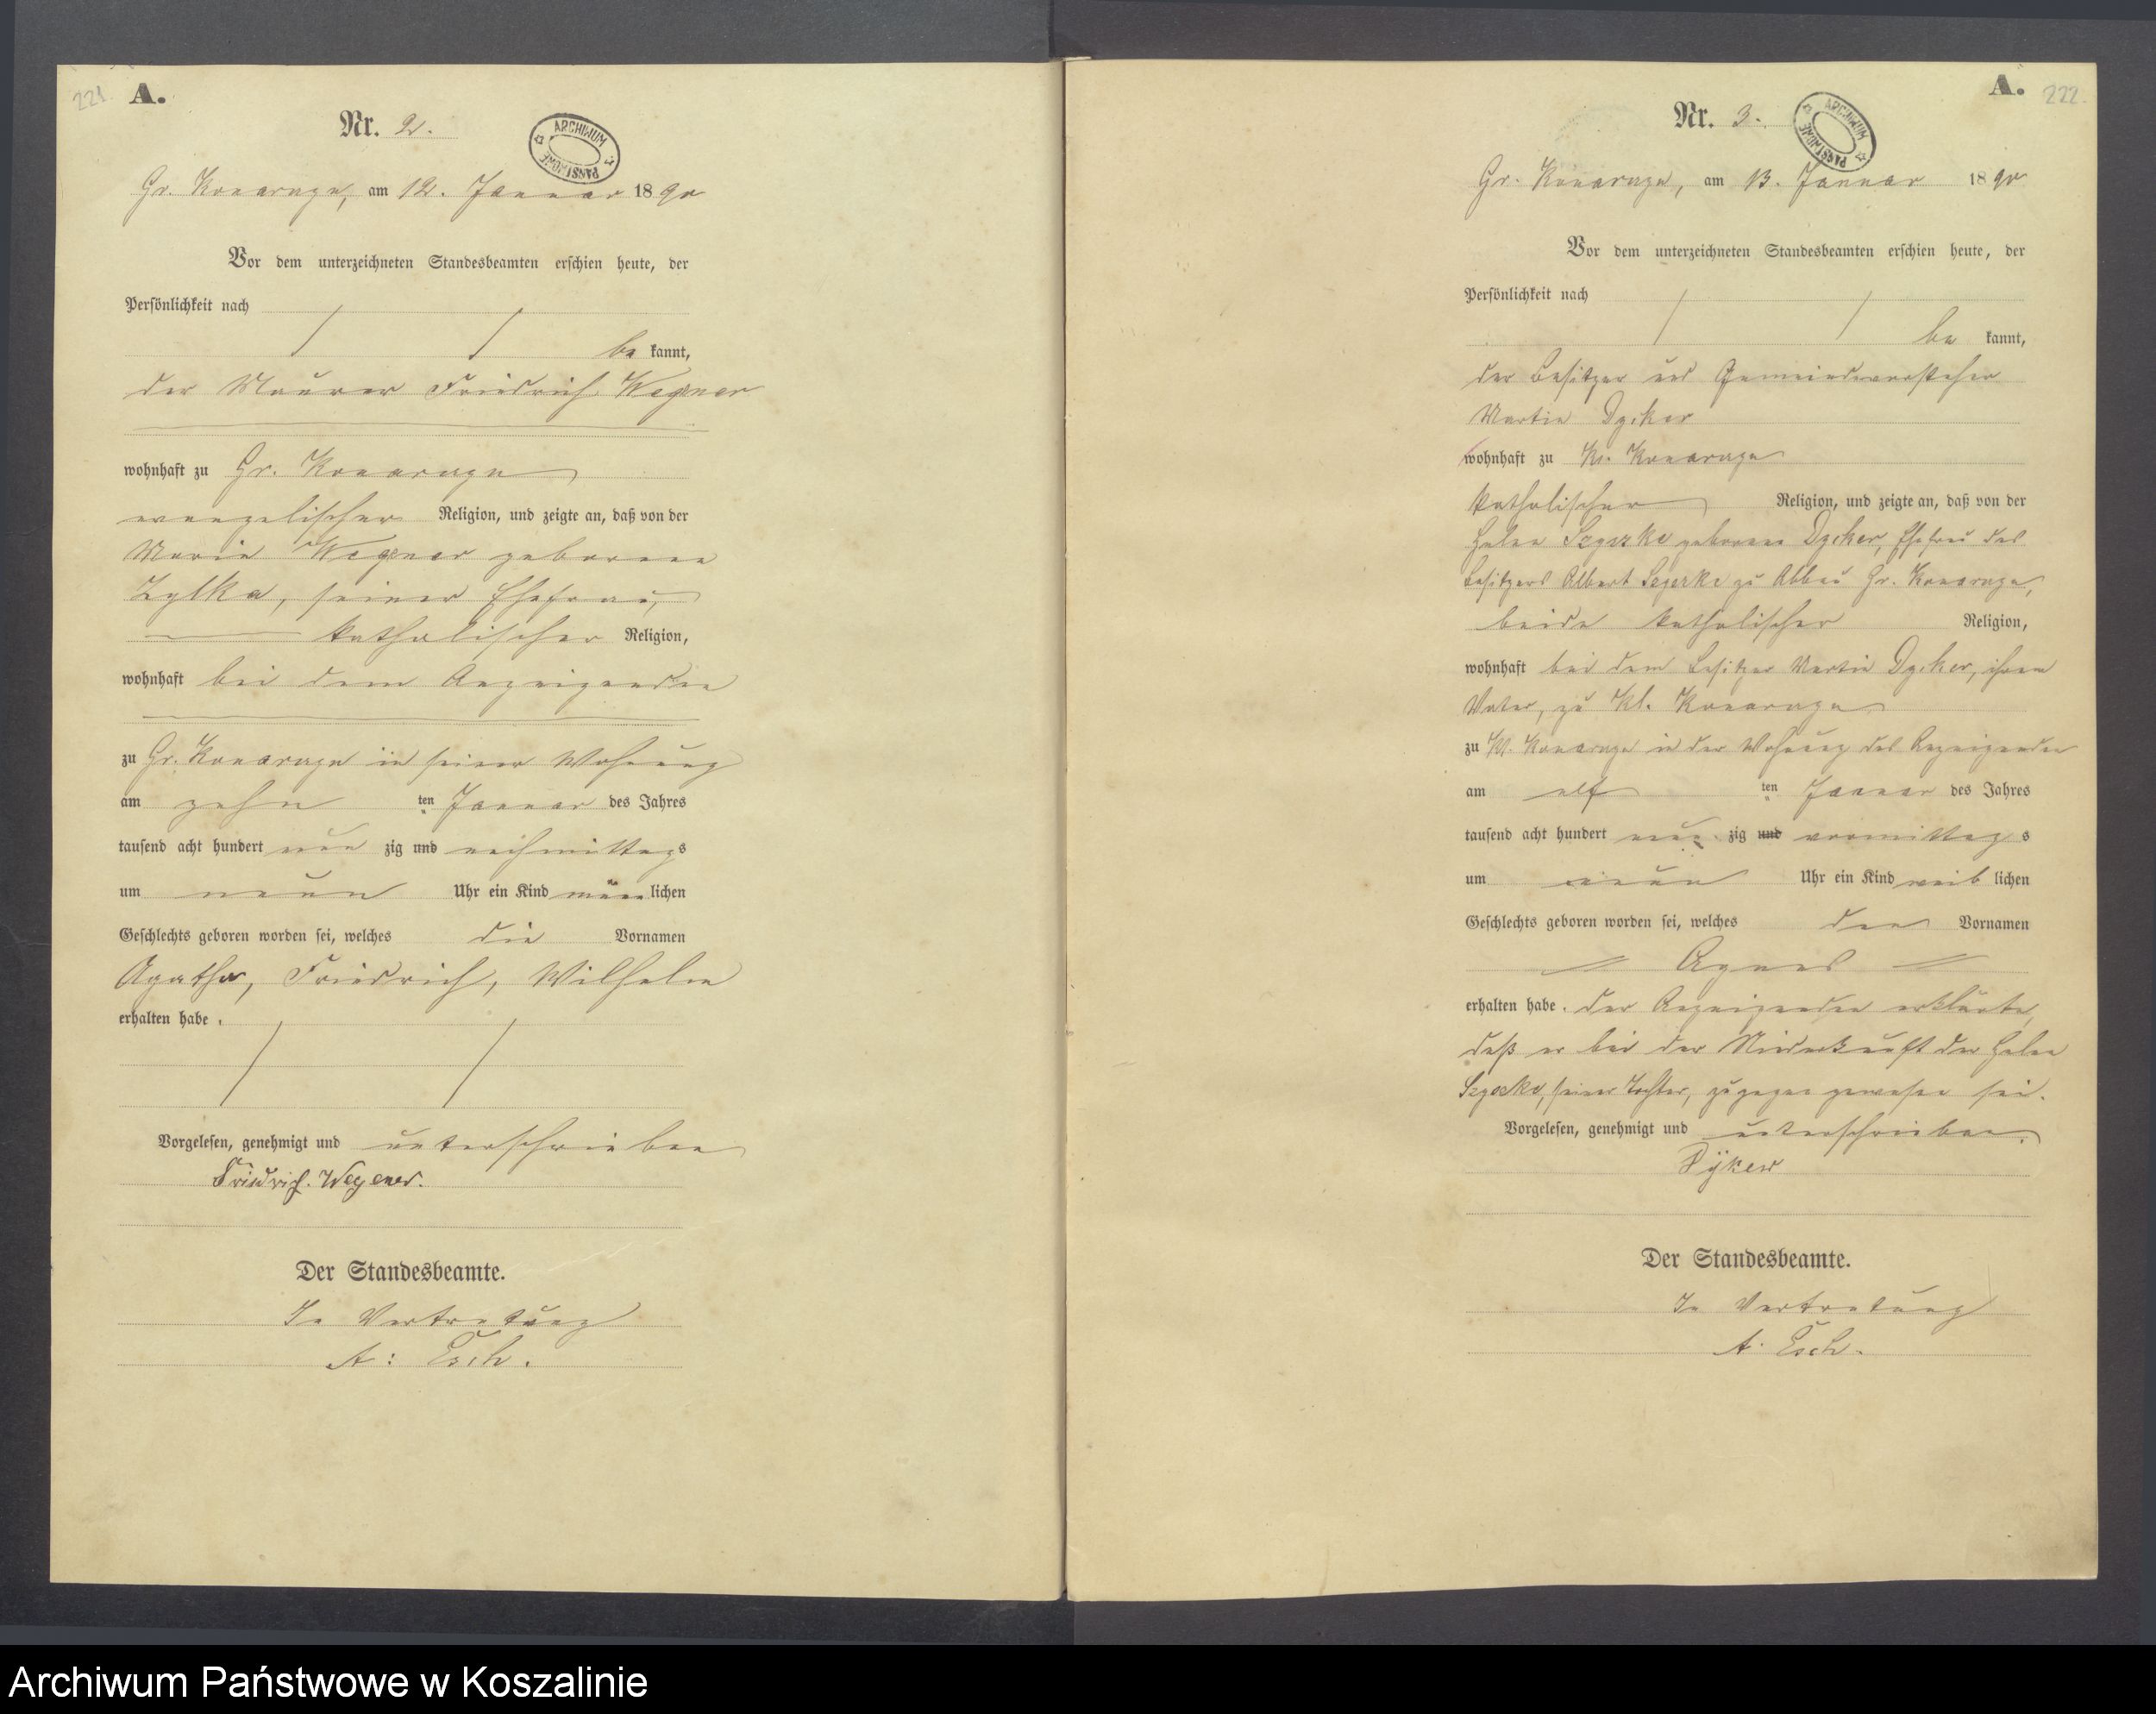 221. A.
Nr. 2.
ARCHIWUM PAŃSTWOWE
Gr. Konarzyn, am 12. Januar 1890
Vor dem unterzeichneten Standesbeamten erschien heute, der
Persönlichkeit nach
be kannt,
der Maurer Friedrich Wegner
wohnhaft zu Gr. Konarzyn
evangelischer Religion, und zeigte an, daß von der
Maria Wegner geborene
Zylka, seiner Ehefrau,
katholischer Religion,
wohnhaft bei dem Anzeigenden
zu Gr. Konarzyn in seiner Wohnung
am zehn ten Januar des Jahres
tausend acht hundert neun zig und nachmittags
um neun Uhr ein Kind männ lichen
Geschlechts geboren worden sei, welches die Vornamen
Agathe, Friedrich, Wilhelm
erhalten habe.
Vorgelesen, genehmigt und unterschrieben
Friedrich Wegener.
Der Standesbeamte.
In Vertretung
A: Esch.
A. 222.
Nr. 3.
ARCHIWUM PAŃSTWOWE
Gr. Konarzyn, am 13. Januar 1890
Vor dem unterzeichneten Standesbeamten erschien heute, der
Persönlichkeit nach
be kannt,
der Besitzer und Gemeindevorsteher
Martin Dyker
wohnhaft zu Kl. Konarzyn
katholischer Religion, und zeigte an, daß von der
geborene Dyker, Ehefrau des
Besitzers Albert zu Abbau Gr. Konarzyn,
beide katholischer Religion,
wohnhaft bei dem Besitzer Martin Dyker, ihrem
Vater, zu Kl. Konarzyn
zu Kl. Konarzyn in der Wohnung des Anzeigenden
am elf ten Januar des Jahres
tausend acht hundert neun zig und vormittags
um neun Uhr ein Kind weib lichen
Geschlechts geboren worden sei, welches den Vornamen
Agnes
erhalten habe. Der Anzeigende erklärte,
daß er bei der Niederkunft der
seiner Tochter, zugegen gewesen sei.
Vorgelesen, genehmigt und unterschrieben.
Dyker
Der Standesbeamte.
In Vertretung
A. Esch.
Archiwum Państwowe w Koszalinie